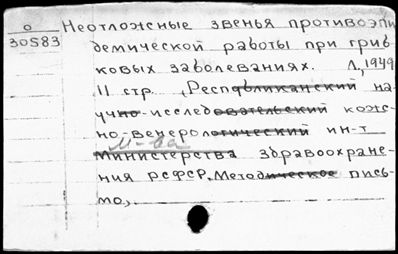 о
30583
Неотложные звенья противоэпи
демической работы при гриб
ковых заболеваниях. Л, 1949
11 стр. (Республиканский на
учно-исследовательский кож
но-венерологический ин-т
М-ва
Министерства здравоохране-
ния РСФСР. Методическое пись-
мо,